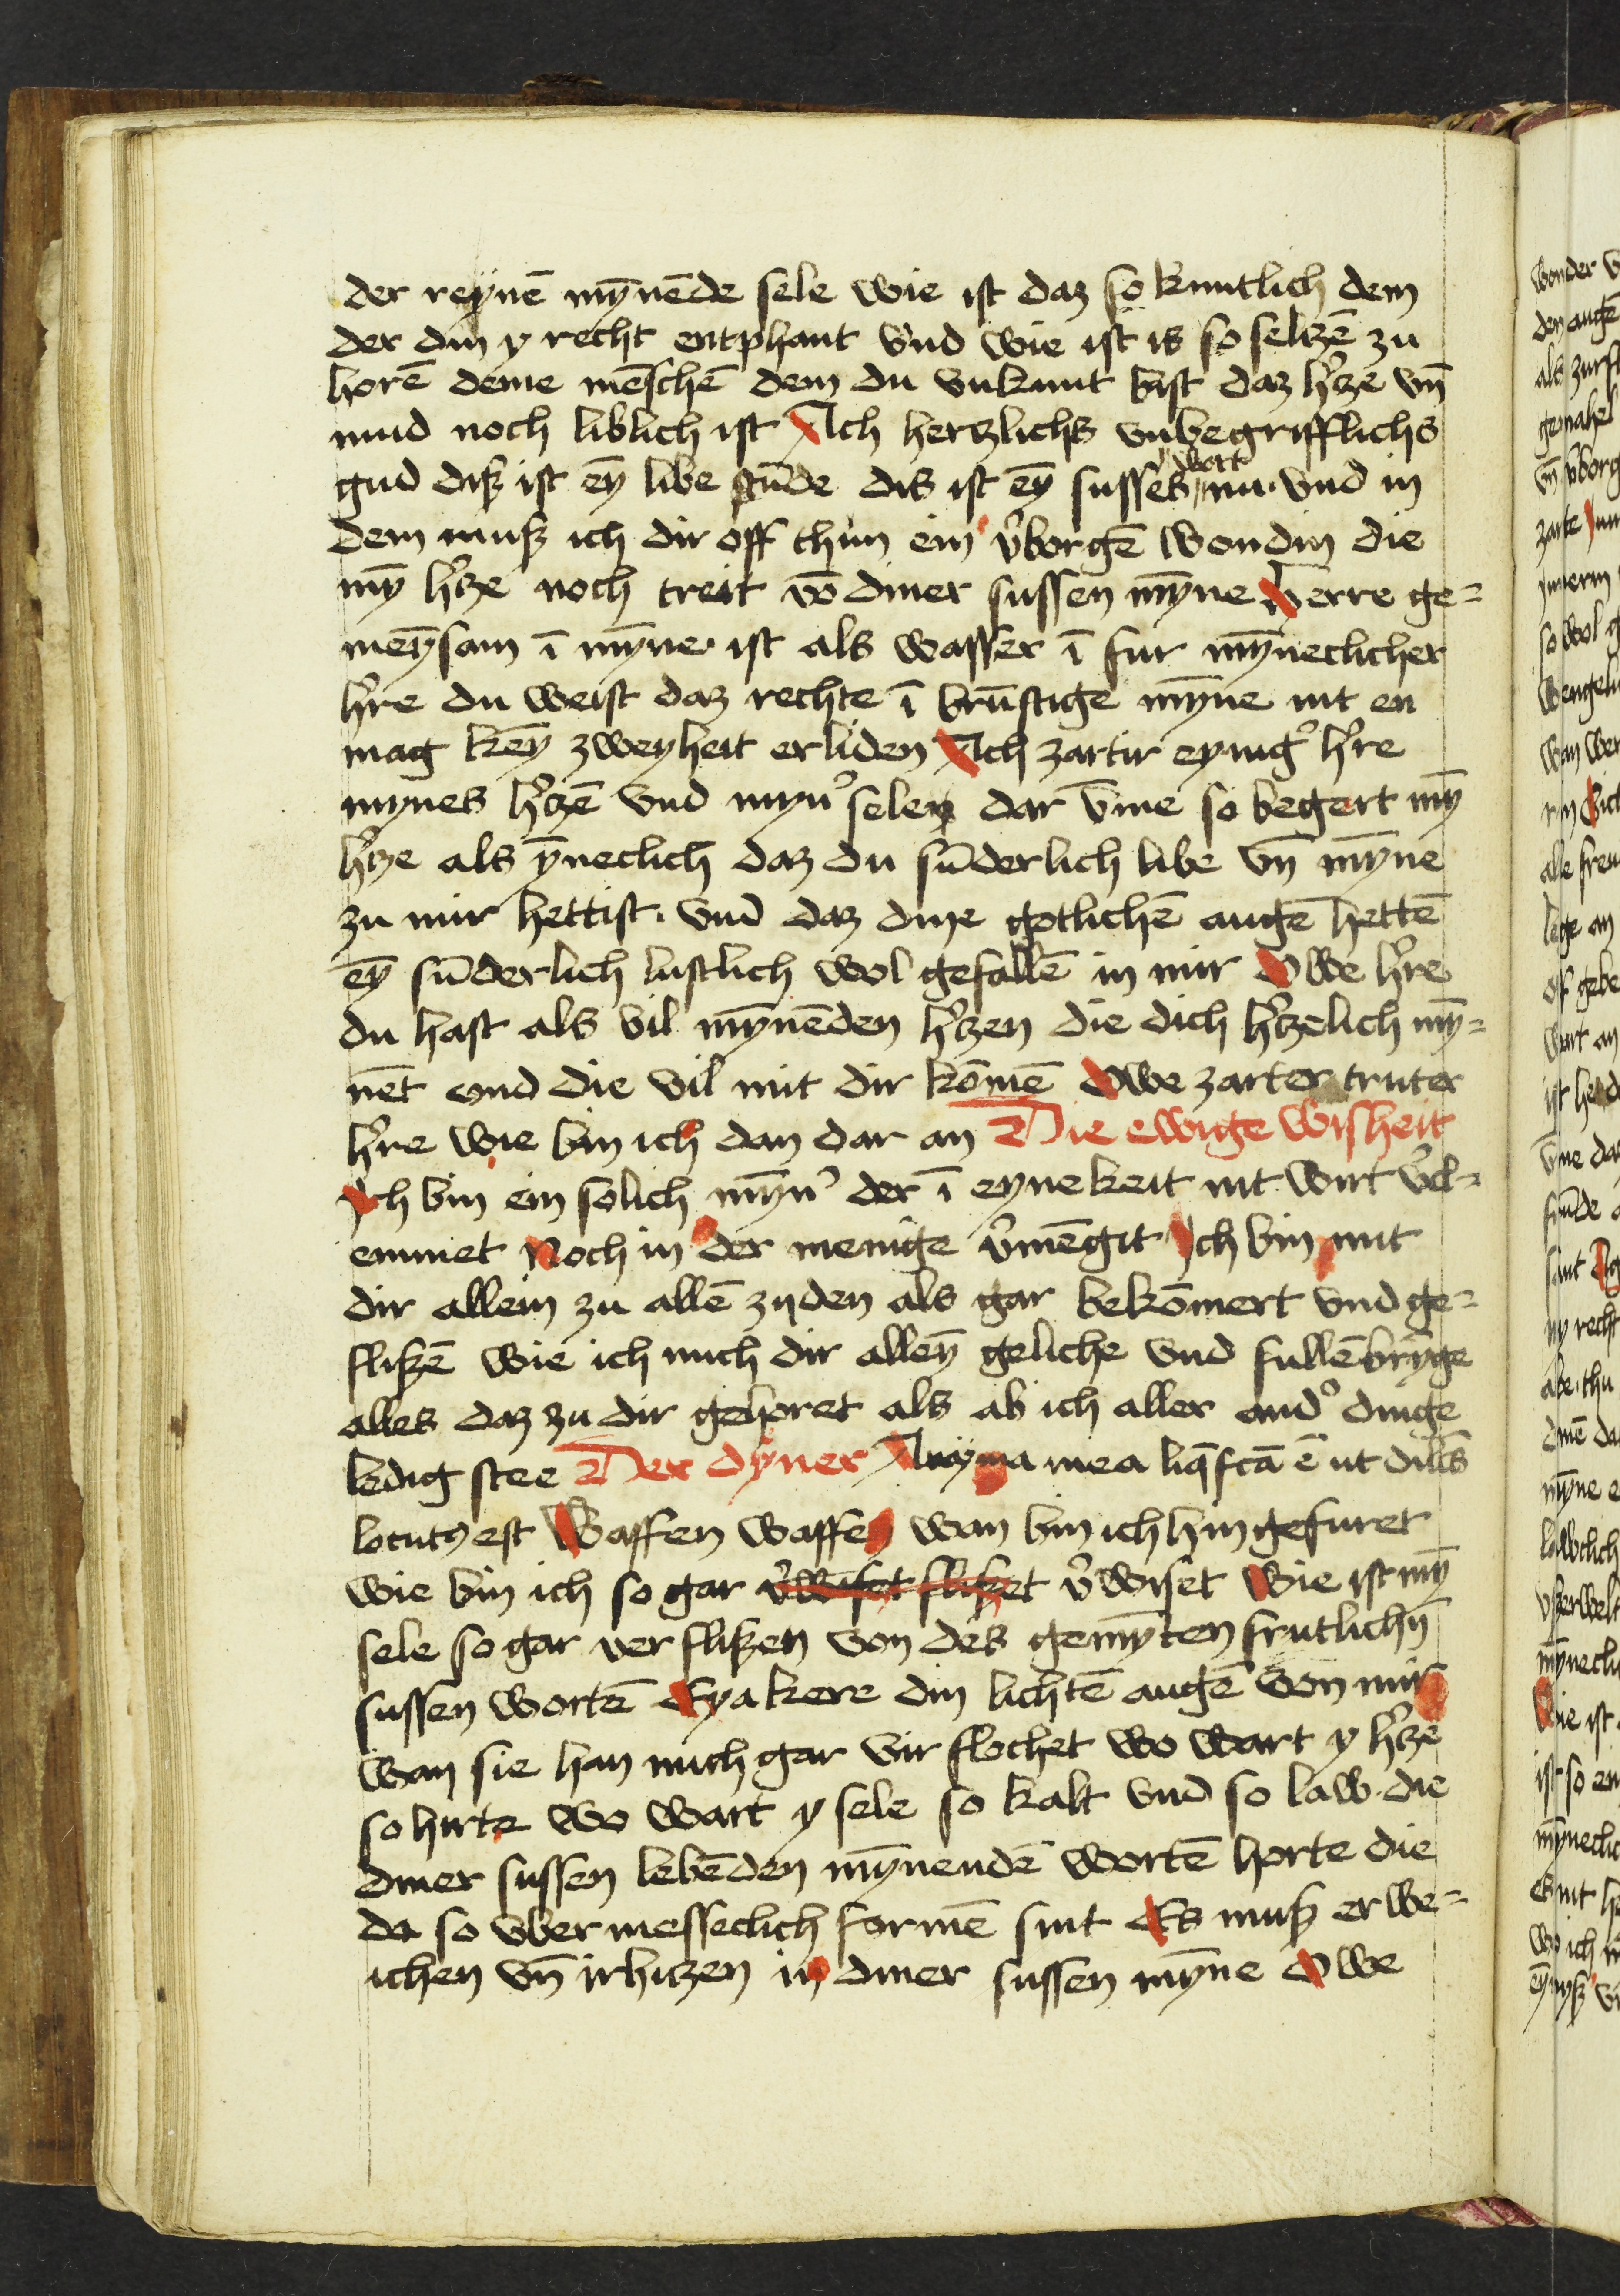 der reÿnē mȳnēde sele wie ist daz so kuntlich dem
der din y recht entphant vnd wie ist is so seltzē zu
horē deme mēschē dem du vnkunt bist daz h̓tze vn̄
mud noch liblich ist Ach hertzlichs vnbegrifflichs
gud diß ist eȳ libe stūde dis ist eȳ susses wort nu vnd in
dem muß ich dir off thun ein v̓borgē wondin die
mȳ h̓tze noch treit vō diner sussen mȳne Herre ge=
meȳsam ī mȳne ist als wasser ī fur mȳneclicher
h̓re du weist daz rechte ī brūstige mȳne nit en
mag keȳ zweyheit erliden Ach zartir eynig̓ h̓re
mynes h̓tzē vnd myn̓ selen dar v̄me so begert mȳ
h̓tze als ȳneclich daz du sūderlich libe vn̄ mȳne
zu mir hettist. vnd daz dine gotlichē augē hettē
eȳ sūderlich lustlich wol gefallē in mir Owe h̓re
du hast als vil mȳnēden h̓tzen die dich h̓tzelich mȳ=
nēt vnd die vil mit dir kōmē Owe zarter truter
h̓re wie bin ich dan dar an Die ewige wisheit
Ich bin ein solich mȳn̓ der ī eynekeit nit wirt v̓cl=
emmet Noch in der menige v̓mēgit Ich bin mit
dir allein zu allē zijden als gar bekōmert vnd ge=
flißē wie ich mich dir alleȳ geliche vnd fullēbrȳge
alles daz zu dir gehoret als ab ich aller and̓ dinge
ledig stee Der dÿner Anÿma mea liq̄fcā ē ut dilc̄s
locutꝰ est Waffen waffen wan bin ich hin gefuret
wie bin ich so gar v̓wiset flißet v̓wiset Wie ist mȳ
sele so gar verflißen von des gemȳten frutlichn̄
sussen wortē Eya kere din lichtē augē von mir
wan sie han mich gar vir flochet wo wart y h̓tze
so hirte wo wart y sele so kalt vnd so law. die
diner sussen lebēden mȳnendē wortē horte die
da so vbermesseclich formē sint Es muß erwe=
ichen vn̄ irhitzen in diner sussen mȳne Owe